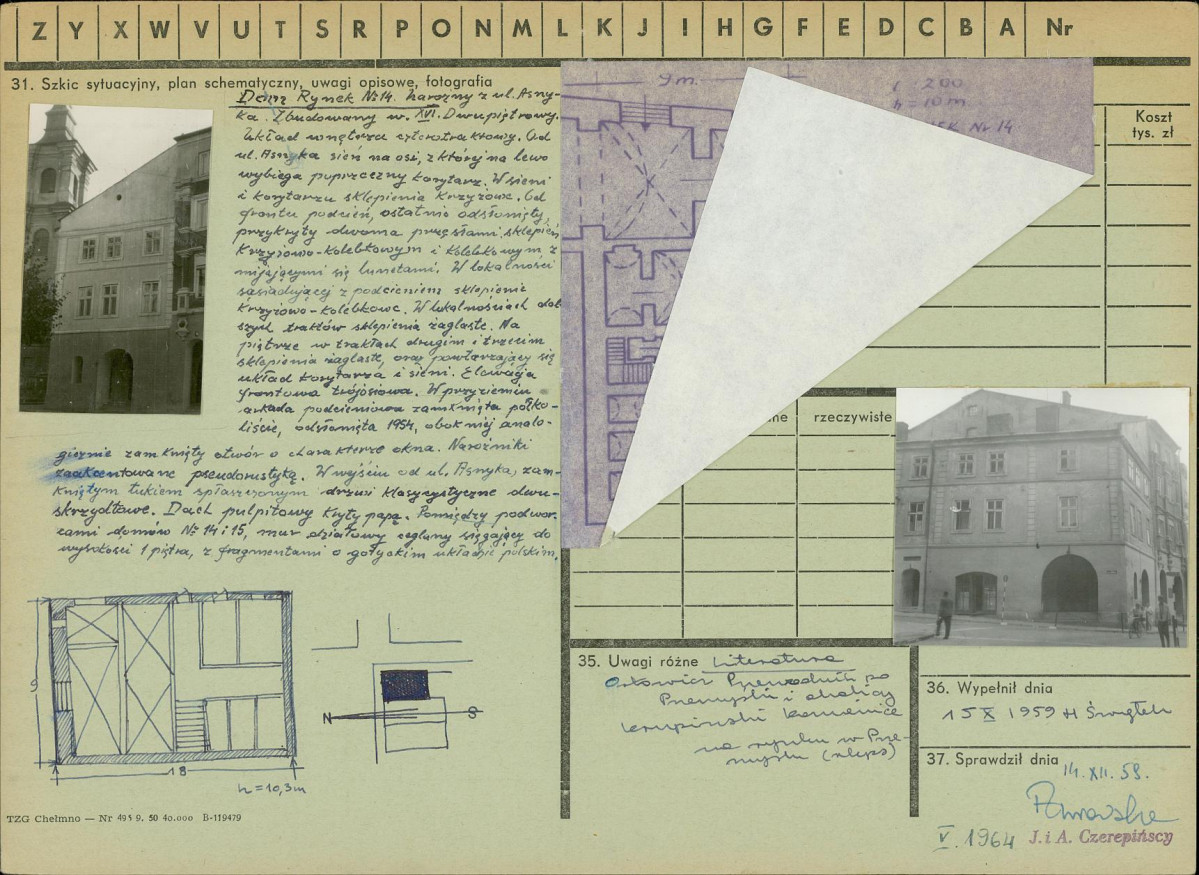 Z Y X W V U T S R P O N M L K J I H G F E D C B A Nr
31. Szkic sytuacyjny, plan schematyczny, uwagi opisowe, fotografia
Dom Rynek № 14. narożny z ul. Asny-
ka. Zbudowany w. XVI. Dwupiętrowy.
Układ wnętrza czterotraktowy. Od
ul. Asnyka sień na osi, z której na lewo
wybiega poprzeczny korytarz. W sieni
i korytarzu sklepienia krzyżowe. Od
frontu podcień, ostatnio odsłonięty,
przykryty dwoma przęsłami sklepień
krzyżowo-kolebkowym i kolebkowym z
mijającymi się lunetami. W lokalności
sąsiadującej z podcieniem sklepienie
krzyżowo-kolebkowe. W lokalnościach dal
szych traktów sklepienia żaglaste. Na
piętrze w traktach drugim i trzecim
sklepienia żaglaste, oraz powtarzający się
układ korytarza i sieni. Elewacja
frontowa trójosiowa. W przyziemiu
arkada podcieniowa zamknięta półko-
liście, odsłonięta 1954, obok niej analo-
gicznie zamknięty otwór o charakterze okna. Narożniki
zaakcentowane pseudorustyką. W wejściu od ul. Asnyka, zam-
kniętym łukiem spłaszczonym drzwi klasycystyczne dwu-
skrzydłowe. Dach pulpitowy kryty papą. Pomiędzy podwór-
cami domów № 14 i 15, mur działowy ceglany sięgający do
wysokości 1 piętra, z fragmentami o gotyckim układzie polskim.
9 m.
1:200
h = 10 m
Nr 14
Koszt
tys. zł
ne
rzeczywiste
9
18
h = 10,3 m
N
S
TZG Chełmno — Nr 495 9. 50 40.000 B-119479
35. Uwagi różne Literatura
Orłowicz Przewodnik po
Przemyślu i okolicy
Krupiński Kamienice
na rynku w Prze-
myślu
36. Wypełnił dnia
15 X 1959 H
37. Sprawdził dnia
14. XII. 59.
V. 1964 J. i A. Czerepińscy